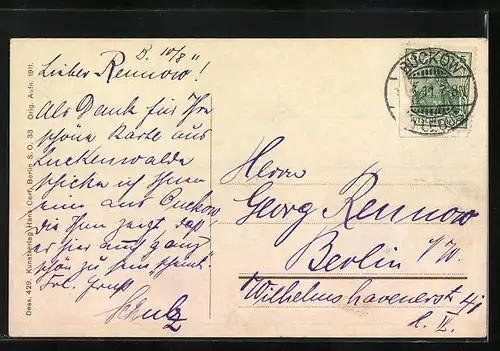 B. 10/8 11
Lieber Rennow!
Als Dank für Ihre
schöne Karte aus
Luckenwalde
schicke ich Ihnen
eine aus Buckow,
die Ihnen zeigt, daß
es hier auch ganz
schön zu sein scheint.
Frl. Gruß
Schulz
Herrn
Georg Rennow
Berlin N.W.
Wilhelmshavenerstr.
BUCKOW
Dess. 429. Kunstverlag Hans Cerf, Berlin S.O. 33 Orig. Aufn. 1911.